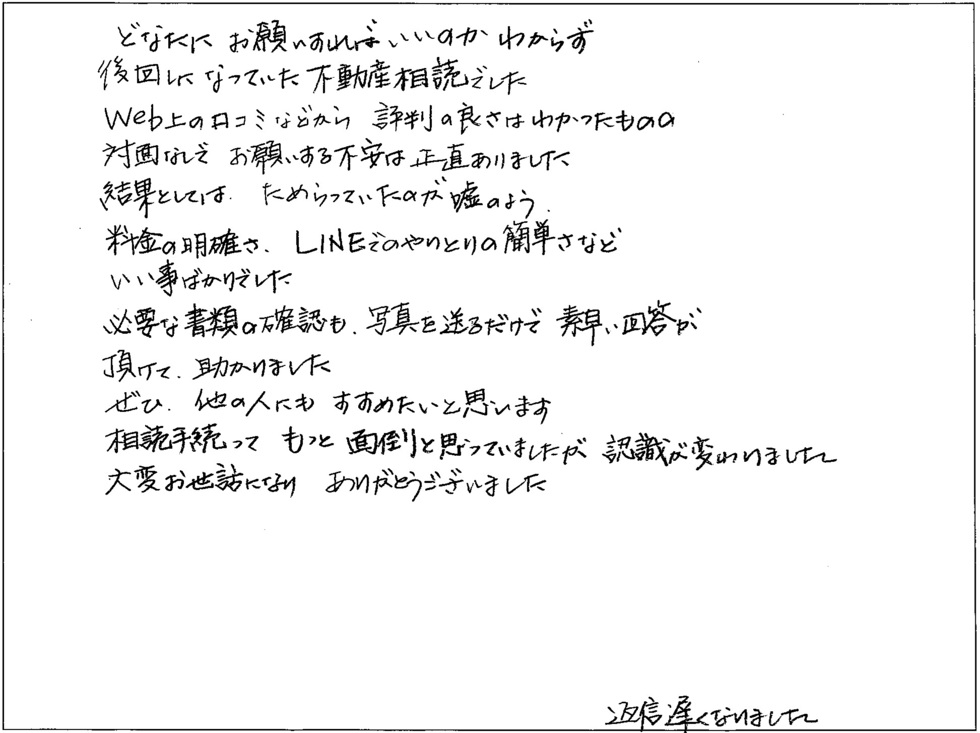 どなたに お願いすればいいのか わからず
後回しになっていた 不動産相続でした
Web上の口コミなどから 評判の良さはわかったものの
対面なしで お願いする不安は正直ありました
結果としては、ためらっていたのが嘘のよう、
料金の明確さ、LINEでのやりとりの簡単さなど
いい事ばかりでした
必要な書類の確認も、写真を送るだけで 素早い回答が
頂けて、助かりました
ぜひ、他の人にも すすめたいと思います
相続手続って もっと 面倒と思っていましたが 認識が変わりました
大変お世話になり ありがとうございました
返信遅くなりました